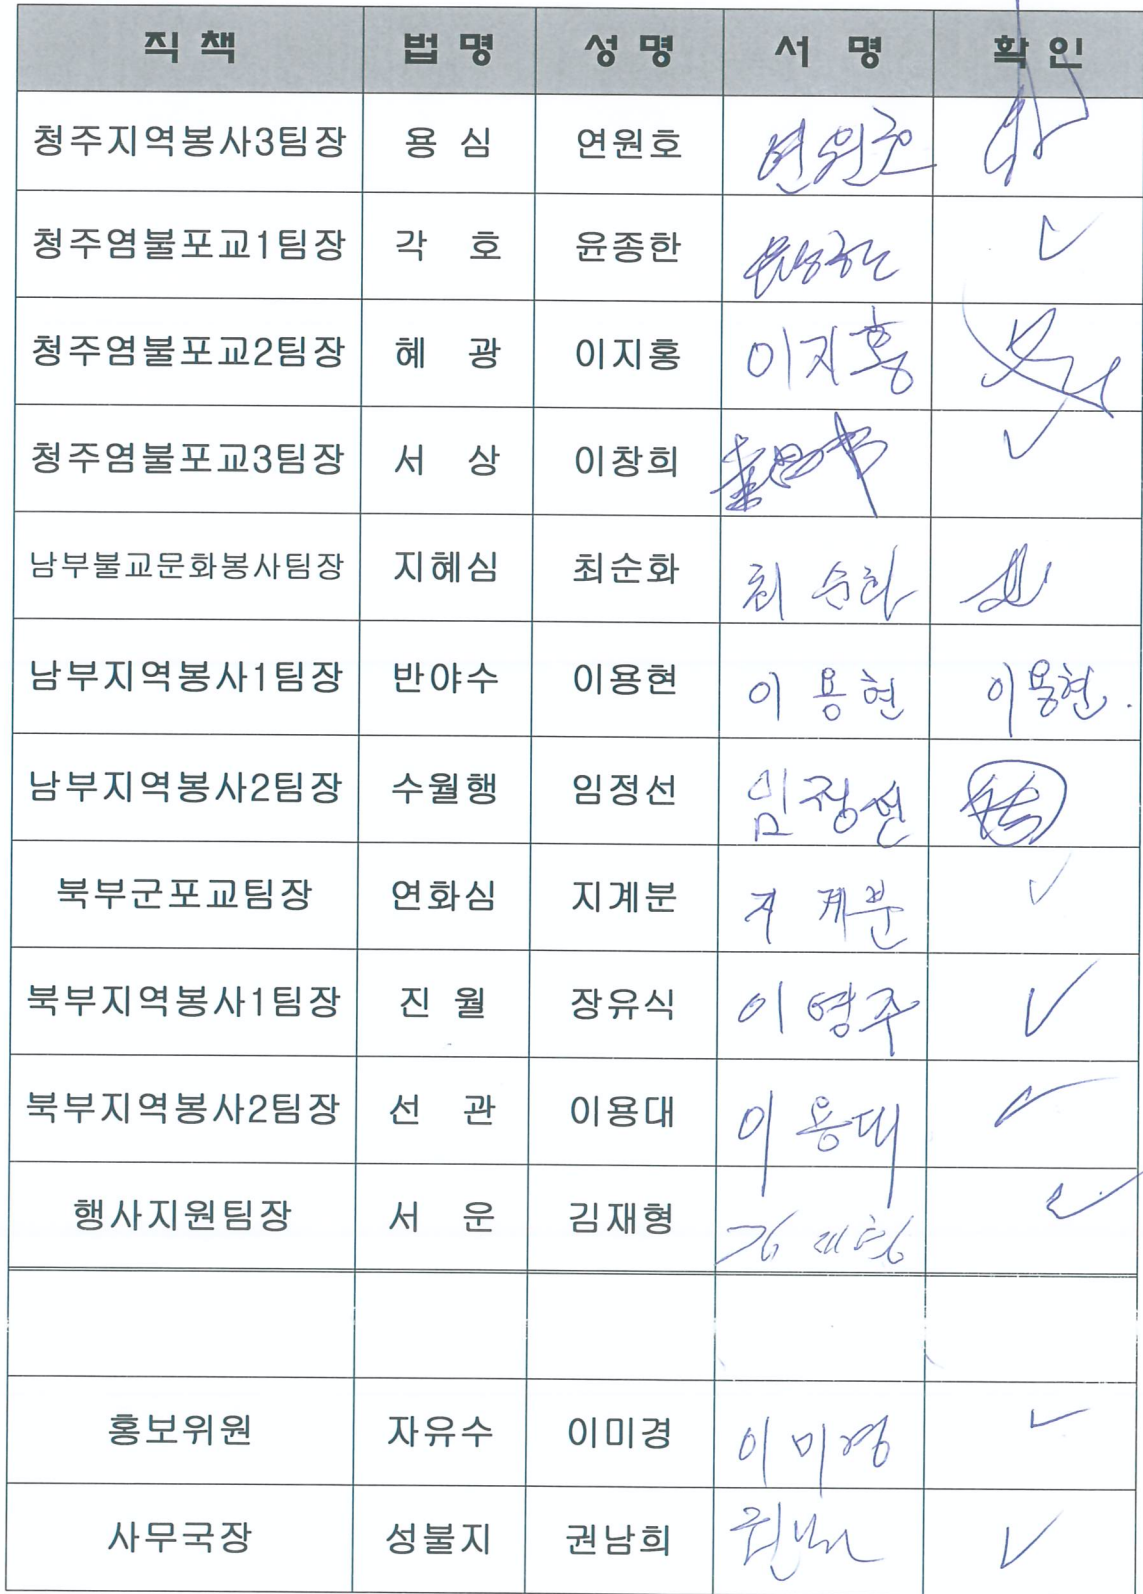 직 책 법 명 성 명 서 명 확 인
청주지역봉사3팀장 용 심 연원호 연원호
청주염불포교1팀장 각 호 윤종한
청주염불포교2팀장 혜 광 이지홍 이지홍
청주염불포교3팀장 서 상 이창희
남부불교문화봉사팀장 지혜심 최순화 최순화
남부지역봉사1팀장 반야수 이용현 이용현 이용현.
남부지역봉사2팀장 수월행 임정선 임정선
북부군포교팀장 연화심 지계분 지계분
북부지역봉사1팀장 진 월 장유식 이영주
북부지역봉사2팀장 선 관 이용대 이용대
행사지원팀장 서 운 김재형 김재형
홍보위원 자유수 이미경 이미경
사무국장 성불지 권남희